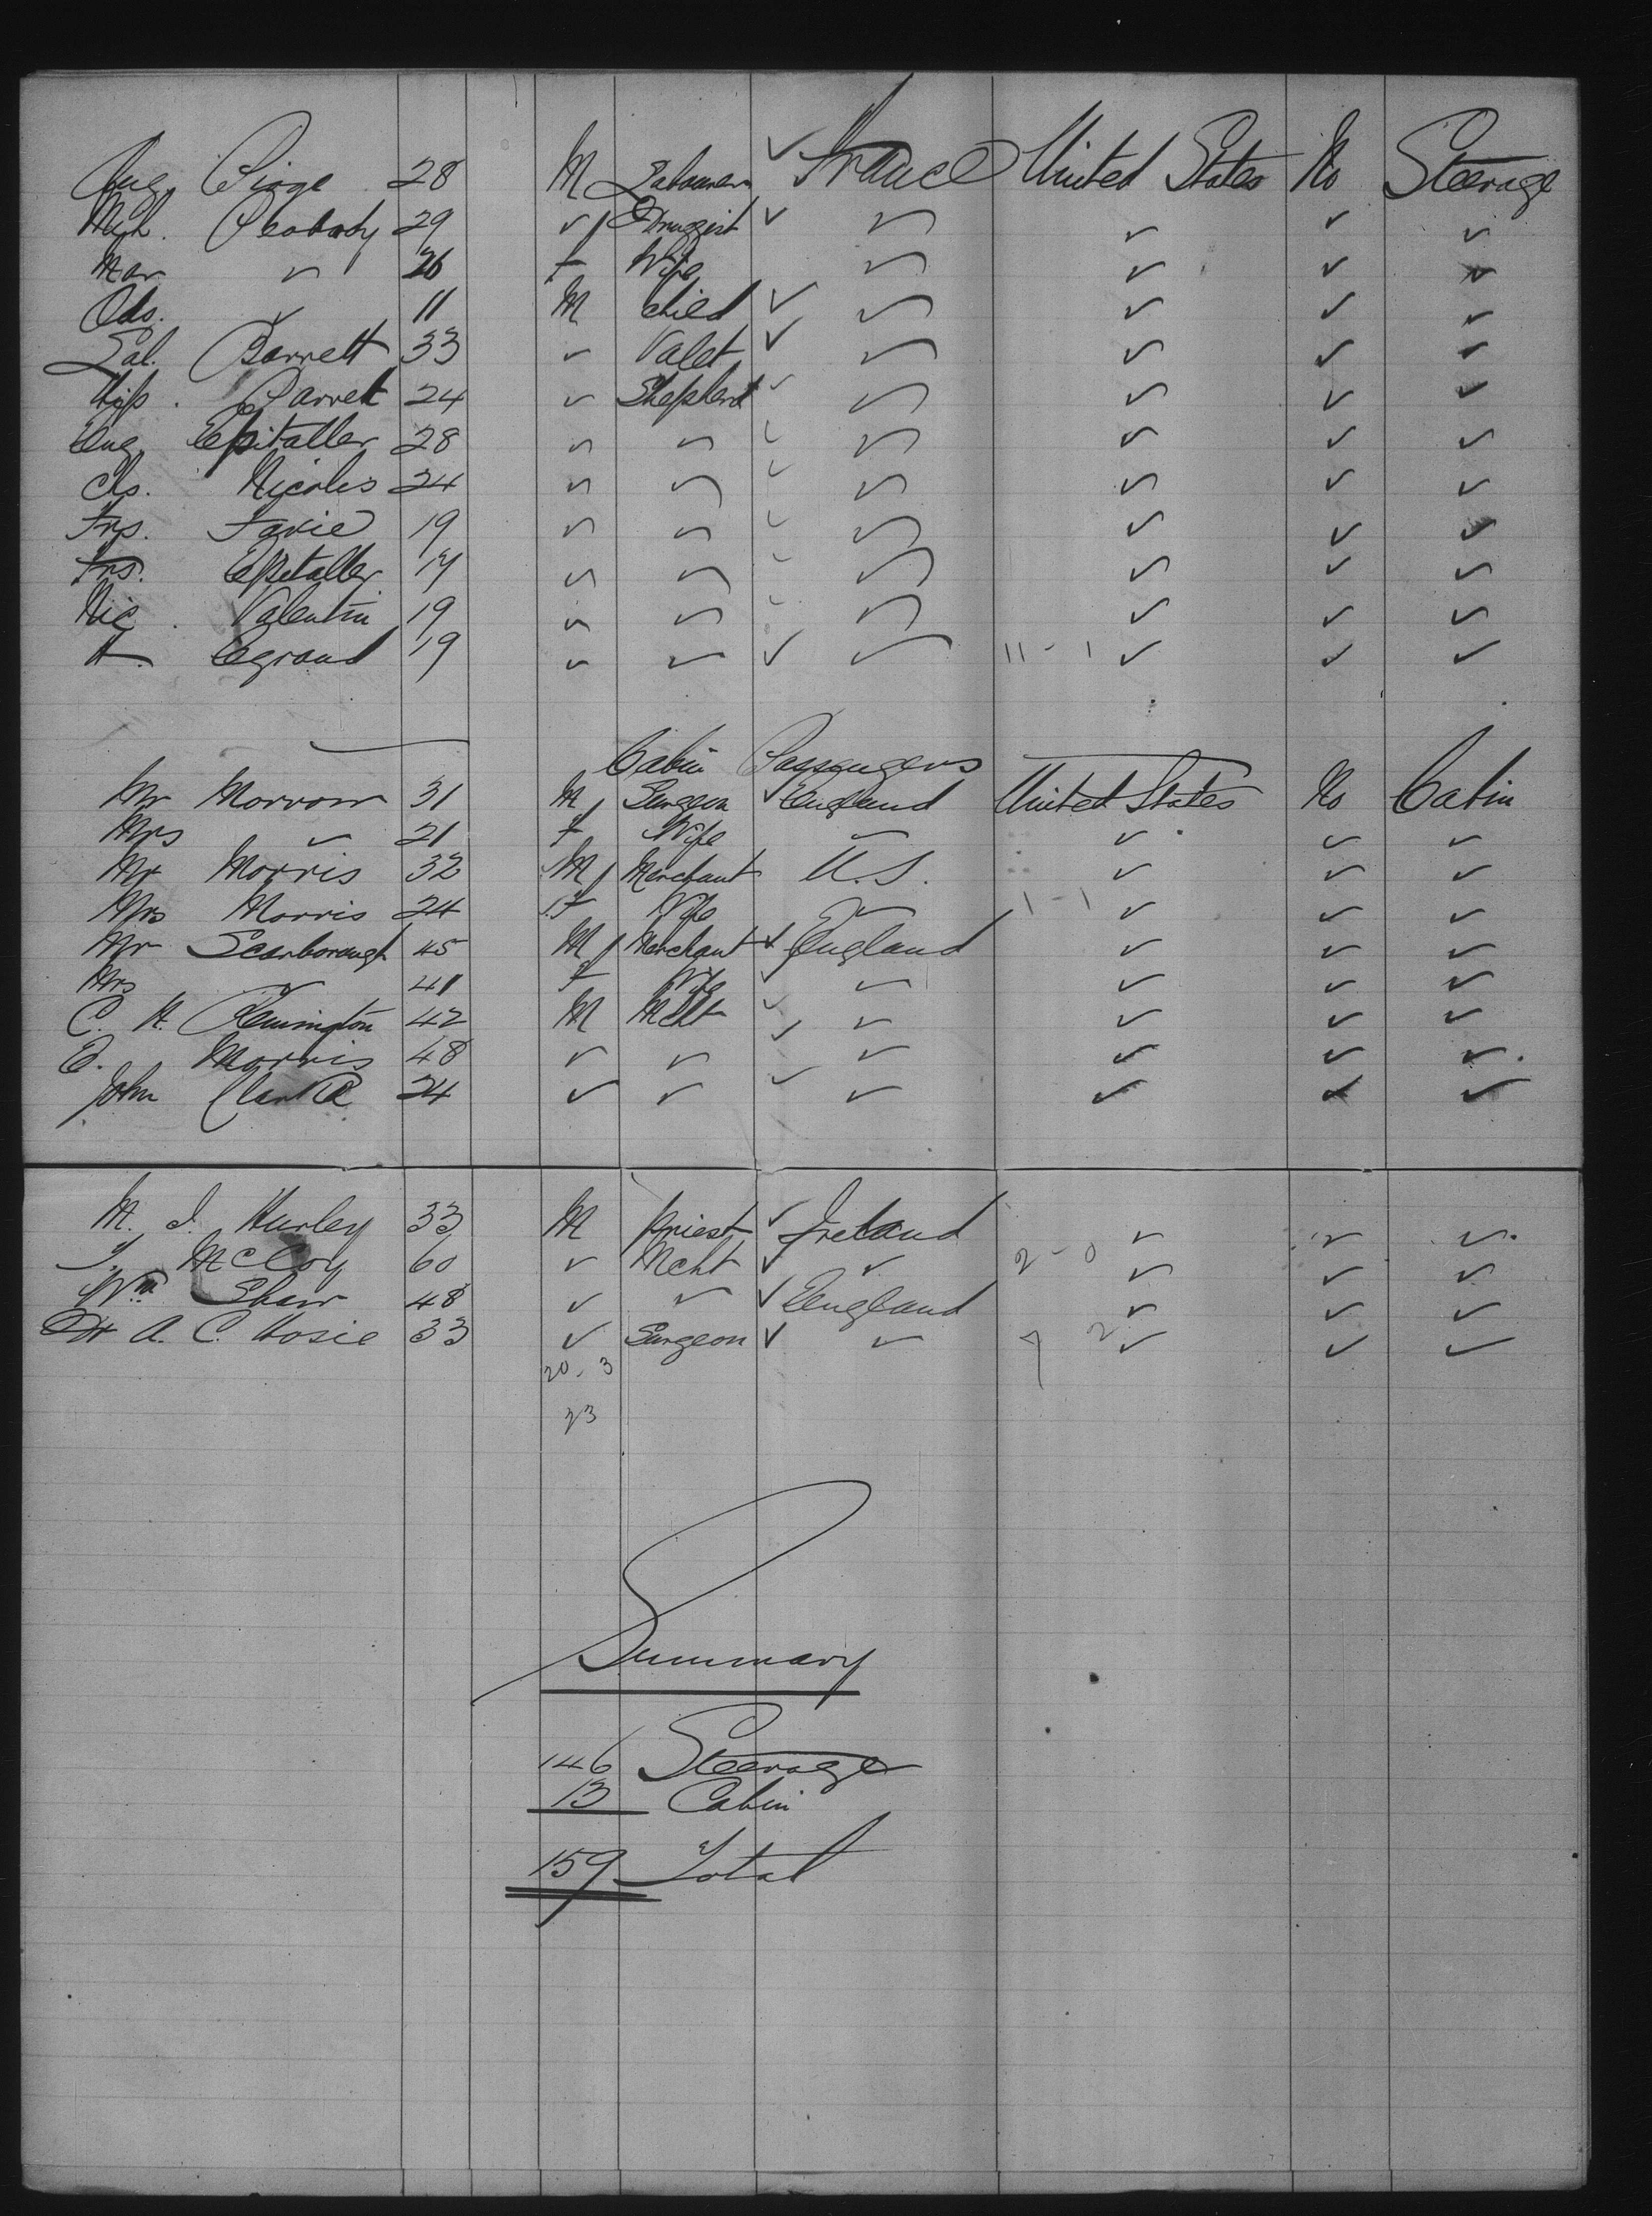 Aug. Pinge 28 M Labourer ✓ France United States No Steerage
Mich. Peabody 29 ✓ Druggist ✓ ✓ ✓ ✓ ✓
Mar ✓ 26 F Wife ✓ ✓ ✓ ✓
Ods. ✓ 11 M Child ✓ ✓ ✓ ✓ ✓
Sal. Barrett 33 ✓ Valet ✓ ✓ ✓ ✓ ✓
Hip. Garrett 24 ✓ Shepherd ✓ ✓ ✓ ✓ ✓
Eug. Espitaller 28 ✓ ✓ ✓ ✓ ✓ ✓ ✓
Chs. Nicoles 24 ✓ ✓ ✓ ✓ ✓ ✓ ✓
Frs. Favie 19 ✓ ✓ ✓ ✓ ✓ ✓ ✓
Frs. Espitaller 17 ✓ ✓ ✓ ✓ ✓ ✓ ✓
Nic. Valentin 19 ✓ ✓ ✓ ✓ ✓ ✓ ✓
A. Legrand 19 ✓ ✓ ✓ ✓ 11 - 1 ✓ ✓ ✓
Cabin Passengers
Mr Morrow 31 M Surgeon ✓ England United States No Cabin
Mrs ✓ 21 F Wife ✓ ✓ ✓ ✓
Mr Morris 32 M Merchant U.S. ✓ ✓ ✓
Mrs Morris 24 F Wife ✓ 1 - 1 ✓ ✓ ✓
Mr Scarborough 45 M Merchant ✓ England ✓ ✓ ✓
Mrs ✓ 41 F Wife ✓ ✓ ✓ ✓ ✓
C. H. Remington 42 M Mcht ✓ ✓ ✓ ✓ ✓
E. Morris 48 ✓ ✓ ✓ ✓ ✓ ✓ ✓
John Clark 24 ✓ ✓ ✓ ✓ ✓ ✓ ✓
M. J. Hurley 33 M Priest ✓ Ireland ✓ ✓ ✓
T. McCoy 60 ✓ Mcht ✓ ✓ 2 - 0 ✓ ✓ ✓
Wm Shaw 48 ✓ ✓ ✓ England ✓ ✓ ✓
A. C. Hosie 33 ✓ Surgeon ✓ ✓ 7 2 ✓ ✓ ✓
20 - 3
23
Summary
146 Steerage
13 Cabin
159 Total